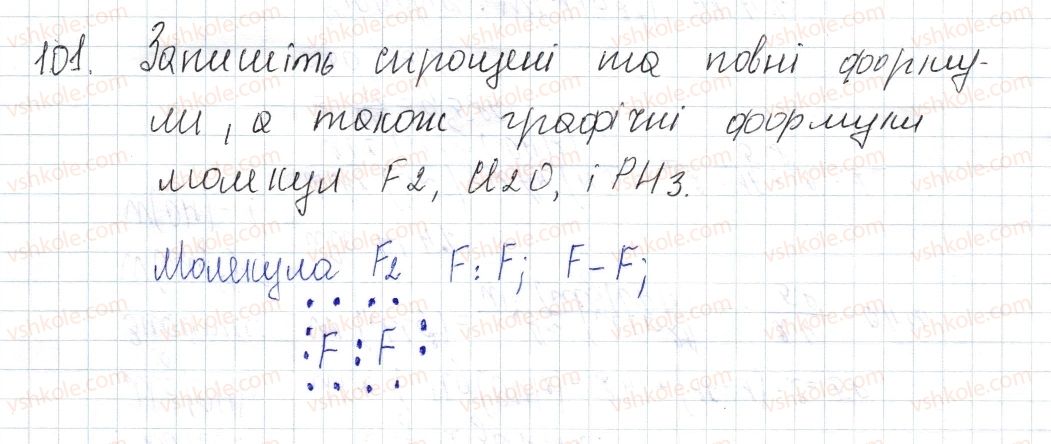 101. Запишіть спрощені та повні форму-
ли, а також графічні формули
молекул F2, Cl2O, і PH3.
Молекула F2 F:F; F-F;
F:F
vshkole.com